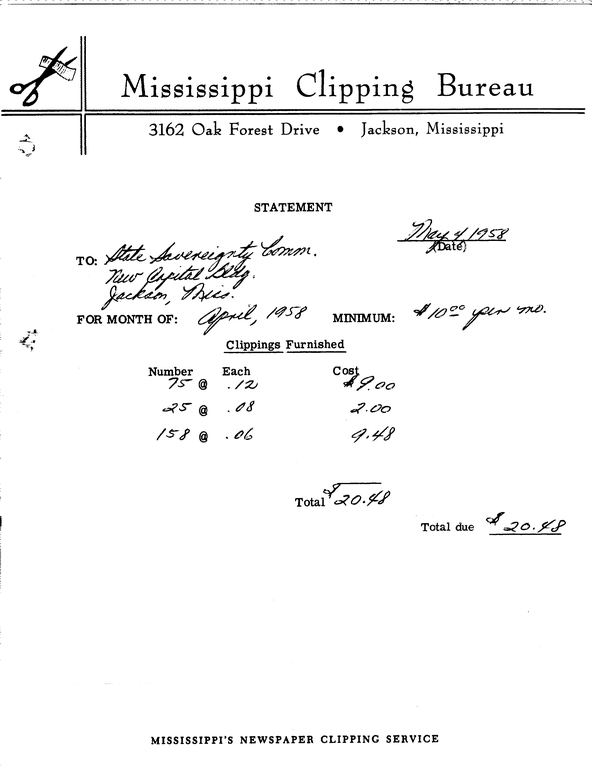 Mississippi Clipping Bureau
3162 Oak Forest Drive • Jackson, Mississippi
STATEMENT
May 4 1958
(Date)
TO: State Sovereignty Comm.
New Capitol Bldg.
Jackson, Miss.
FOR MONTH OF: April, 1958 MINIMUM: $10.00 per mo.
Clippings Furnished
Number Each Cost
75 @ .12 $9.00
25 @ .08 2.00
158 @ .06 9.48
Total $20.48
Total due $20.48
MISSISSIPPI'S NEWSPAPER CLIPPING SERVICE